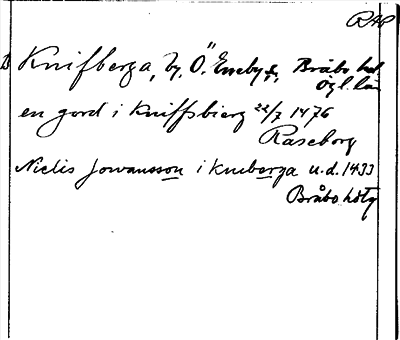 RAP
B Knifberga, by, Ö. Eneby s., Bråbo hd
Ög l. län
en gord i Kniffsbierg 22/7 1476
Raseborg
Nielis Jowansson i Kneberga u.d. 1433
Bråbo hdtg